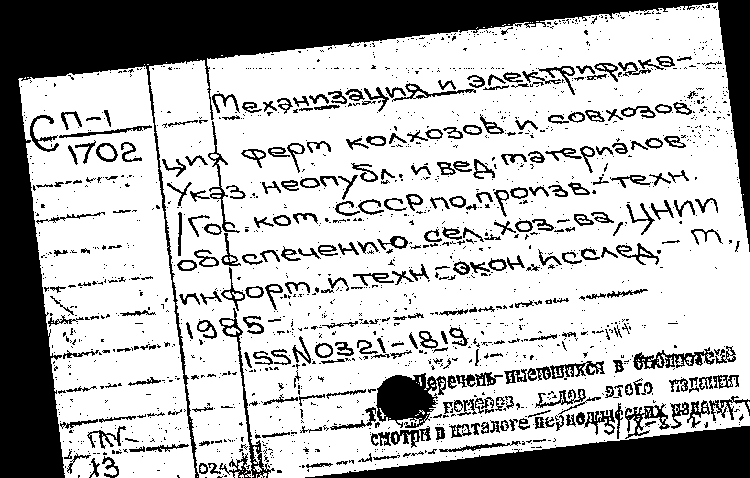 С П-1
1702
Механизация и электрифика-
ция ферм колхозов и совхозов
Указ. неопубл. и вед. материалов
/Гос. ком. СССР по произв.-техн.
обеспечению сел. хоз-ва, ЦНИИ
информ. и техн.-экон. исслед.- М.,
1985-
ISSN 0321-1819
Перечень имеющихся в библиотеке
номеров, годов этого издания
смотри в каталоге периодических изданий
13